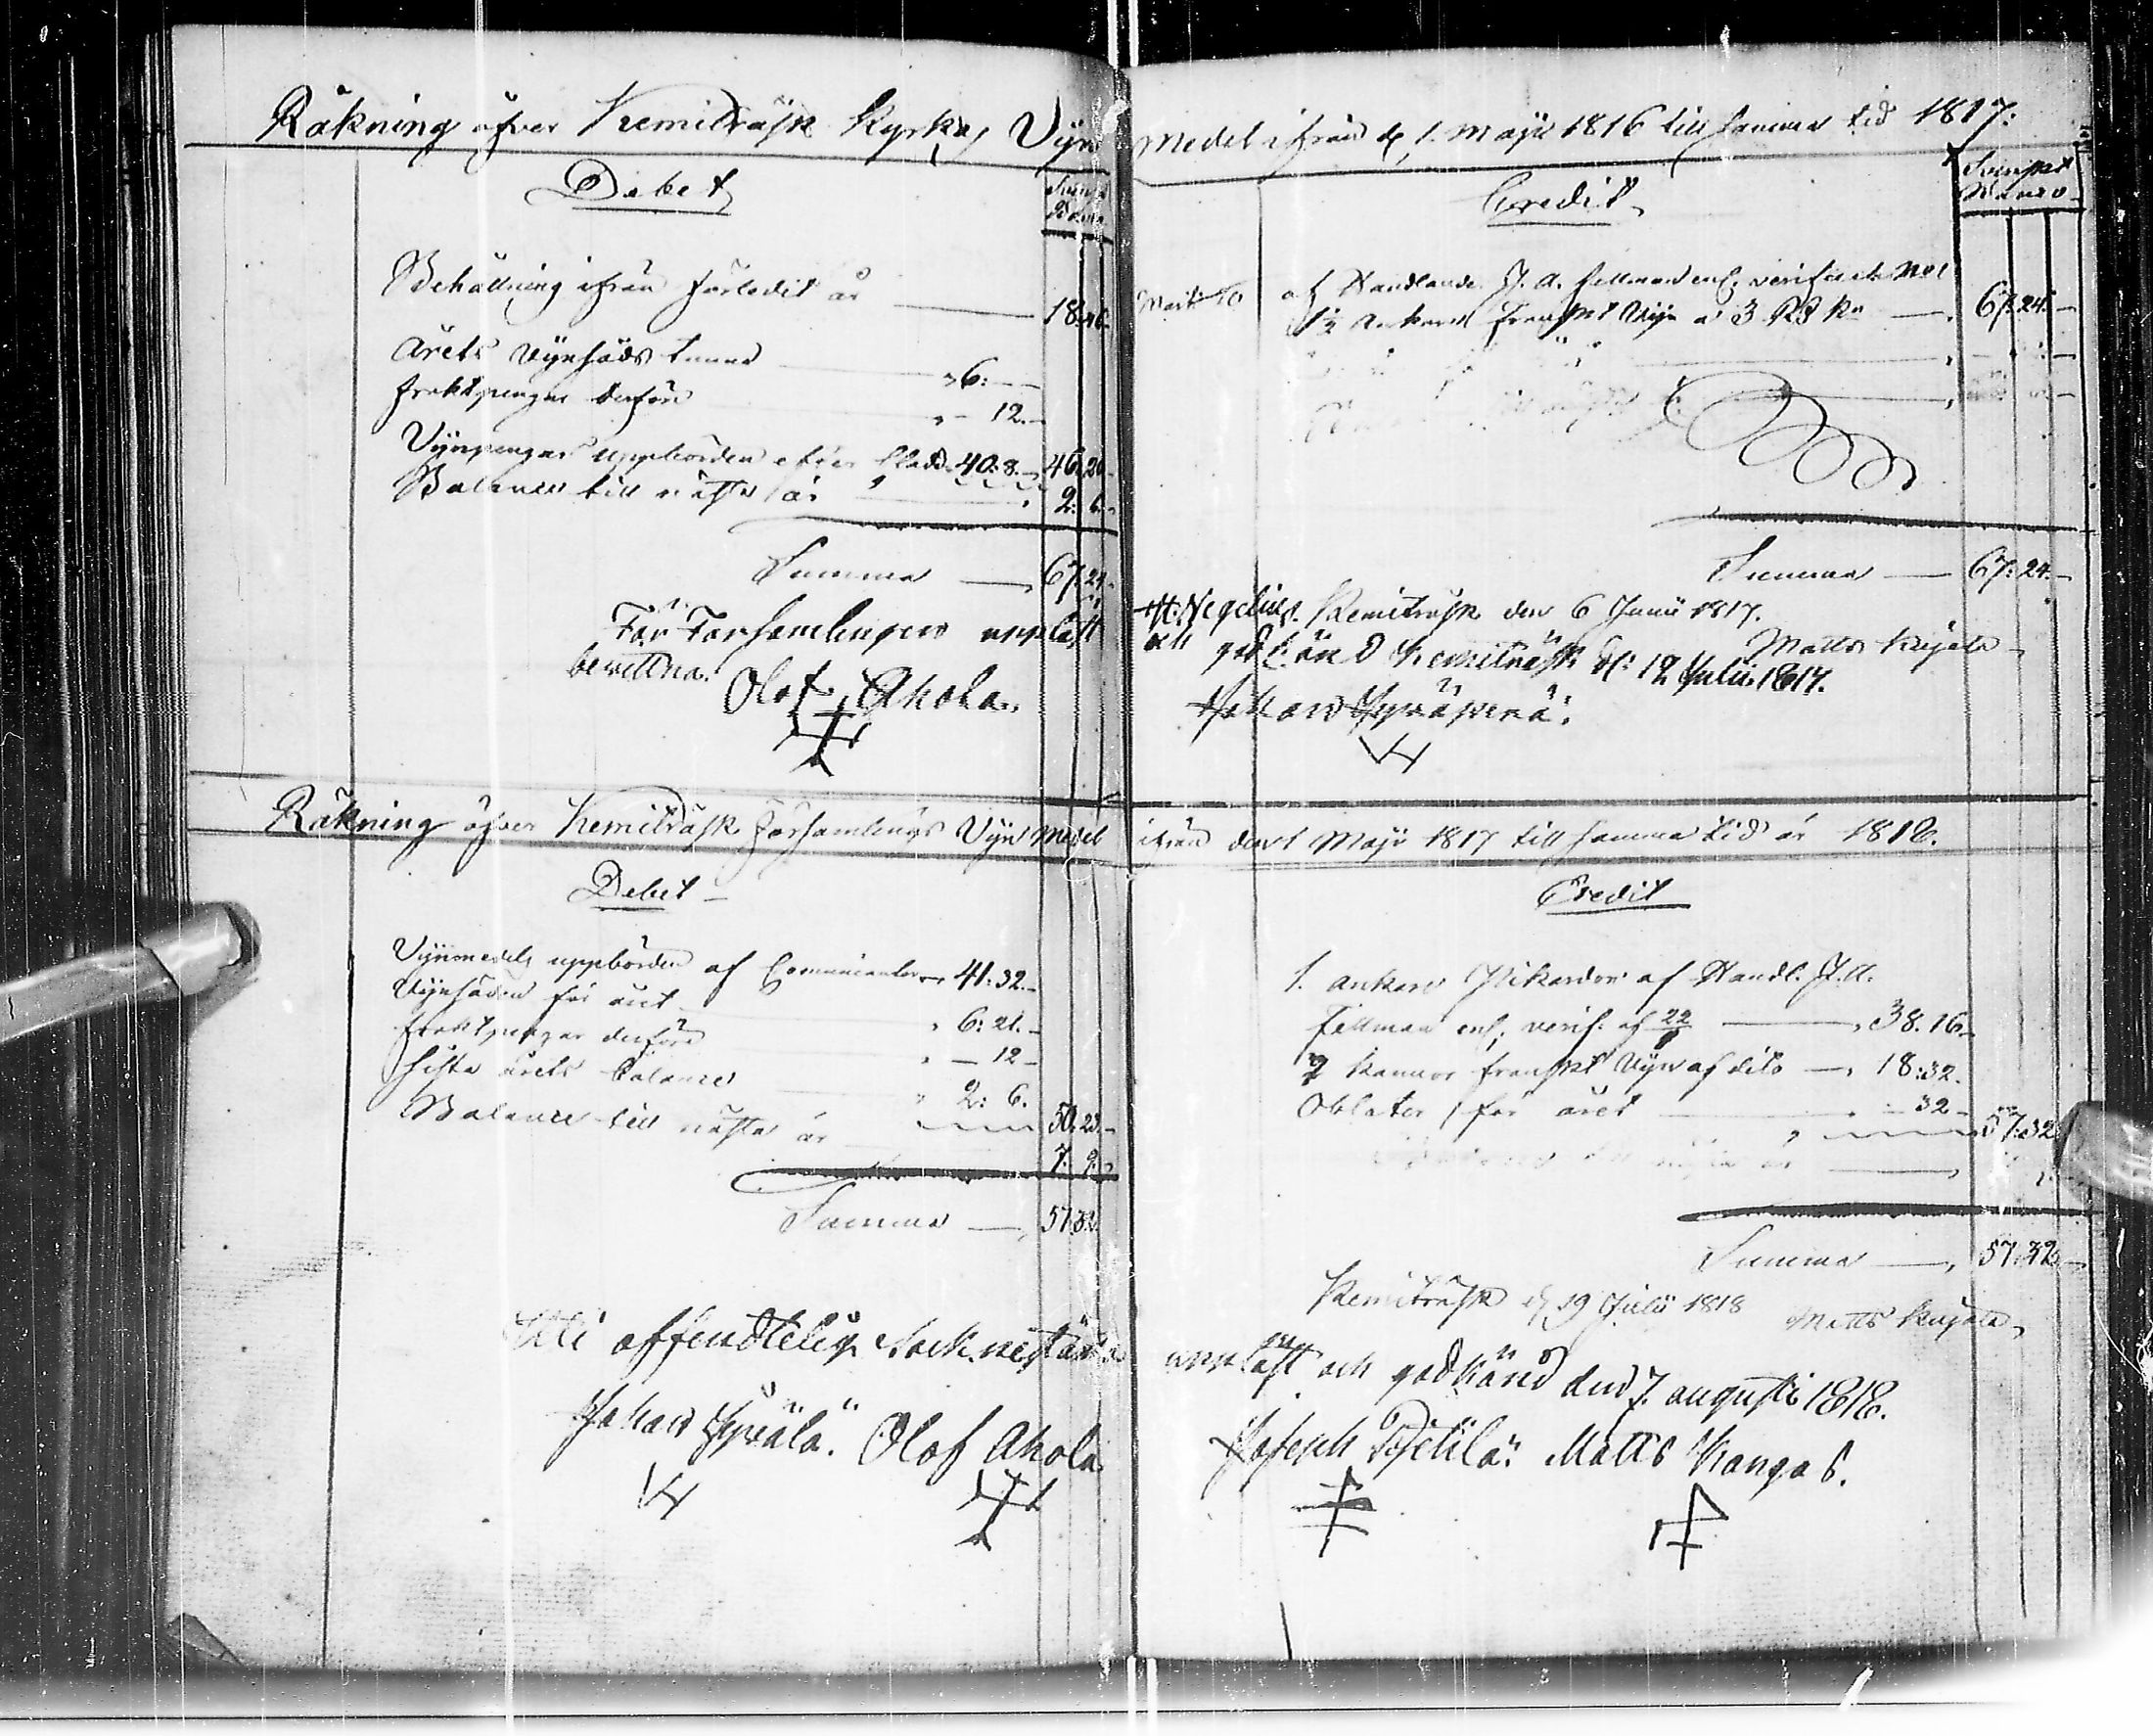 Räkning öfver Kemiträsk Kyrkas Vyn Medel ifrån d. 1. Maji 1816 till samma tid 1817:
Debet
Svenskt Banco
Behållning ifrån förledit år 18:46.
Årets Vynsäds tunna 6:—
Fraktpengar derföre — 12.—
Vynpengar uppbördne efter 40:8.— 46:20
Balance till nästa år 2: 6.
Summa 67:24.
För Församlingen uppläst
Olof Ahola.
Credit
Svenskt Banco
af Handlande J. A. Fellman enl. verificat No 1
1½ Ankare Franskt Vyn a 3 R 67:24.—
Summa — 67:24.—
Kemiträsk den 6 Junii 1817.
Matts Kujala
och godkänd Kemiträsk d: 12 Julii 1817.
Räkning öfver Kemiträsk Församlings Vyn Medel ifrån den 1 Maji 1817 till samma tid år 1818.
Debet
Vynmedels uppbörden af Communicanterne 41:32.—
Vynsäden för året 6: 21.—
Fraktpengar derföre — 12—
Sista årets balance 2: 6. 50:23.—
Balance till nästa år 7: 9.
Summa — 57:32
Credit
1. Ankare Pikardon af Handl. J. A.
Fellman enl. verif. af 22 38.16.
7 Kannor franskt Vyn af dito —, 18:32.
Oblater för året 32— 57:32
Summa — 57:32.—
Kemiträsk d. 19 Julii 1818 Matts Kujala
Uti offendtelig Socknestämma uppläst och godkänd den 7. augusti 1818.
Johan Olof Ahola Joseph Matts Kangas.